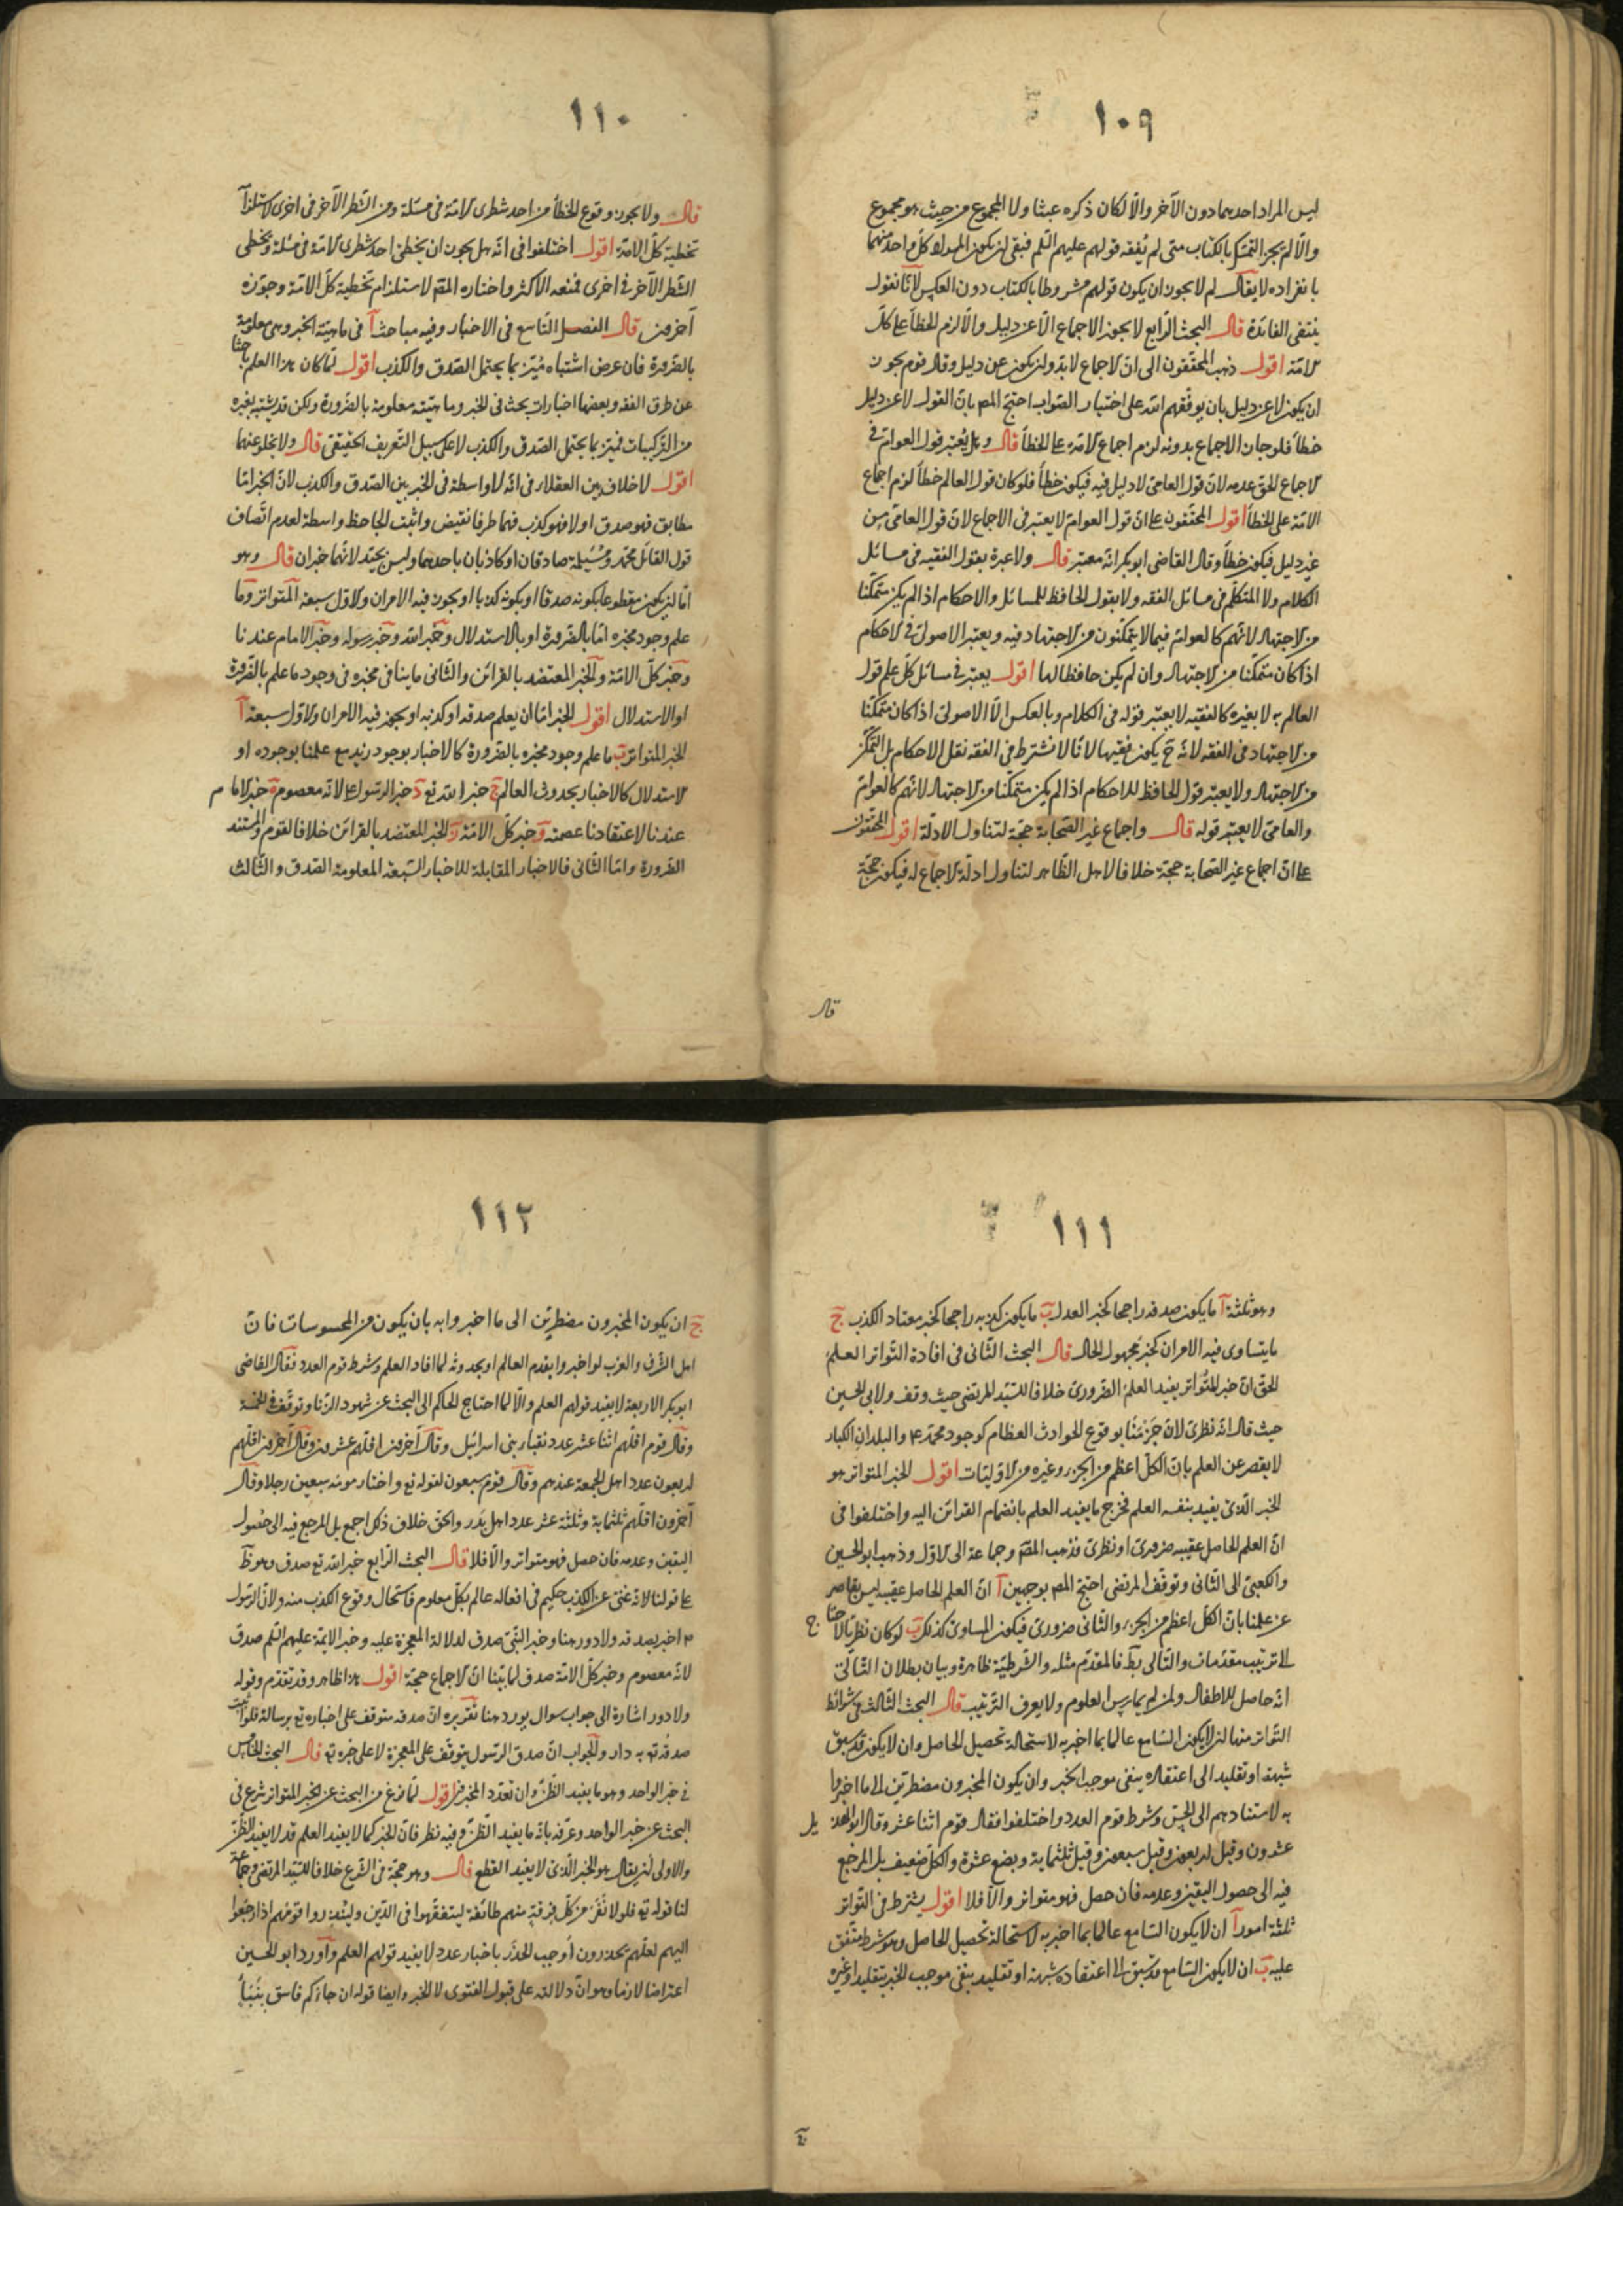 ١٠٩
ليس المراد احدهما دون الآخر والّا لكان ذكره عبثا ولا المجموع من حيث هو مجموع
والّا لم يجز التمسّك بالكتاب متى لم يُفقه قولهم عليهم السّلم فبقى ان يكون المراد كلّ واحد منهما
بانفراده لا يقال لم لا يجوز ان يكون قولهم مشروطا بالكتاب دون العكس لانّا نقول
ينتفى الفائدة قال البحث الرّابع لا يجوز الاجماع الّا عن دليل والّا لزم الخطأ على كلّ
الامّة اقول ذهب المحقّقون الى انّ الاجماع لابدّ وان يكون عن دليل وقال قوم يجوز
ان يكون لا عن دليل بان يوفّقهم الله على اختيار الصّواب احتجّ المص بانّ القول لا عن دليل
خطأ فلو جاز الاجماع بدونه لزم اجماع الامّة على الخطأ قال وهل يُعتبر قول العوامّ فى
الاجماع الحق عدمه لانّ قول العامىّ لا دليل فيه فيكون خطأً فلو كان قول العالم خطأً لزم اجماع
الامّة على الخطأ اقول المحقّقون على انّ قول العوامّ لا يعتبر فى الاجماع لانّ قول العامىّ من
غير دليل فيكون خطأً وقال القاضى ابو بكر انّه معتبر قال ولا عبرة بقول الفقيه فى مسائل
الكلام ولا المتكلّم فى مسائل الفقه ولا بقول الحافظ للمسائل والاحكام اذا لم يكن متمكّنا
من الاجتهاد لانّهم كالعوامّ فيما لا يتمكّنون من الاجتهاد فيه ويعتبر الاصولىّ فى الاحكام
اذا كان متمكّنا من الاجتهاد وان لم يكن حافظا لها اقول يعتبر فى مسائل كلّ علم قول
العالم به لا بغيره كالفقيه لا يعتبر قوله فى الكلام وبالعكس الّا الاصولىّ اذا كان متمكّنا
من الاجتهاد فى الفقه لانّه ح يكون فقيها لانّا لا نشترط فى الفقه نقل الاحكام بل التمكّن
من الاجتهاد ولا يعتبر قول الحافظ للاحكام اذا لم يكن متمكّنا من الاجتهاد لانّهم كالعوامّ
والعامىّ لا يعتبر قوله قال واجماع غير الصّحابة حجّة لتناول الادلّة اقول المحقّقون
على انّ اجماع غير الصّحابة حجّة خلافا لاهل الظّاهر لتناول ادلّة الاجماع له فيكون حجّة
قال
١١٠
قال ولا يجوز وقوع الخطأ من احد شطرى الامّة فى مسئلة ومن الشّطر الآخر فى اخرى لاستلزام
تخطية كلّ الامّة اقول اختلفوا فى انّه هل يجوز ان يخطئ احد شطرى الامّة فى مسئلة ويخطى
الشّطر الآخر فى اخرى فمنعه الاكثر واختاره المص لاستلزام تخطية كلّ الامّة وجوّزه
آخرون قال الفصل التّاسع فى الاخبار وفيه مباحث آ فى ماهيّة الخبر وهى معلومة
بالضّرورة فان عرض اشتباه مُيّز بما يحتمل الصّدق والكذب اقول لمّا كان هذا العلم باحثا
عن طرق الفقه وبعضها اخبارات بحث فى الخبر وماهيّته معلومة بالضّرورة ولكن قد يشتبه بغيره
من التركيبات فيميّز بما يحتمل الصّدق والكذب لا على سبيل التّعريف الحقيقى قال ولا يخلو عنهما
اقول لا خلاف بين العقلاء فى انّه لا واسطة فى الخبر بين الصّدق والكذب لانّ الخبر امّا
مطابق فهو صدق او لا فهو كذب فهما طرفا نقيض واثبت الجاحظ واسطة لعدم اتّصاف
قول القائل محمّد ومُسَيلمة صادقان او كاذبان باحدهما وليس بجيّد لانّهما خبران قال وهو
امّا ان يكون مقطوعا بكونه صدقا او بكونه كذبا او يجوز فيه الامران والاوّل سبعة المتواتر وما
علم وجود مخبره امّا بالضّرورة او بالاستدلال وخبر الله وخبر رسوله وخبر الامام عندنا
وخبر كلّ الامّة والخبر المعتضد بالقرائن والثّانى ما ينافى مخبره فى وجود ما علم بالضّرورة
او الاستدلال اقول الخبر امّا ان يعلم صدقه او كذبه او يجوز فيه الامران والاوّل سبعة آ
الخبر المتواتر ب ما علم وجود مخبره بالضّرورة كالاخبار بوجود زيد مع علمنا بوجوده او
الاستدلال كالاخبار بحدوث العالم ج خبر الله تع د خبر الرّسول ع لانّه معصوم ه خبر الامام
عندنا لاعتقادنا عصمته و خبر كلّ الامّة ز والخبر المعتضد بالقرائن خلافا لقوم والمستند
الضّرورة وامّا الثّانى فالاخبار المقابلة للاخبار السّبعة المعلومة الصّدق والثّالث
١١١
وهو ثلثة آ ما يكون صدقه راجحا كخبر العدل ب ما يكون كذبه راجحا كخبر معتاد الكذب ج
ما يتساوى فيه الامران كخبر مجهول الحال قال البحث الثّانى فى افادة التّواتر العلم
الحق انّ خبر المتواتر يفيد العلم الضّرورىّ خلافا للسّيّد المرتضى حيث وقف ولابى الحسين
حيث قال انّه نظرىّ لانّ جَزْمَنَا بوقوع الحوادث العظام كوجود محمّد ع والبلدان الكبار
لا يقصر عن العلم بانّ الكلّ اعظم من الجزء وغيره من الاوّليّات اقول الخبر المتواتر هو
الخبر الّذى يفيد بنفسه العلم فخرج ما يفيد العلم بانضمام القرائن اليه واختلفوا فى
انّ العلم الحاصل عقيبه ضرورىّ او نظرىّ فذهب المص وجماعة الى الاوّل وذهب ابو الحسين
والكعبىّ الى الثّانى وتوقّف المرتضى احتجّ المص بوجهين آ انّ العلم الحاصل عقيبه ليس بقاصر
عن علمنا بانّ الكلّ اعظم من الجزء والثّانى ضرورىّ فيكون المساوى كذلك ب لو كان نظريّا لاحتاج
الى ترتيب مقدّمات والتّالى بط فالمقدّم مثله والشّرطيّة ظاهرة وبيان بطلان التّالى
انّه حاصل للاطفال ولمن لم يمارس العلوم ولا يعرف التّرتيب قال البحث الثّالث فى شرائط
التّواتر منها ان لا يكون السّامع عالما بما اخبر به لاستحالة تحصيل الحاصل وان لا يكون قد سبق
شبهة او تقليد الى اعتقاده ينفى موجب الخبر وان يكون المخبرون مضطرّين الى ما اخبروا
به لاستنادهم الى الحسّ وشرط قوم العدد واختلفوا فقال قوم اثنا عشر وقال ابو الهذيل
عشرون وقيل اربعون وقيل سبعون وقيل ثلثماية وبضع عشرة والكلّ ضعيف بل المرجع
فيه الى حصول اليقين وعدمه فان حصل فهو متواتر والّا فلا اقول يشترط فى التّواتر
ثلثة امور آ ان لا يكون السّامع عالما بما اخبر به لاستحالة تحصيل الحاصل وهو شرط متّفق
عليه ب ان لا يكون السّامع قد سبق الى اعتقاده شبهة او تقليد ينفى موجب الخبر بتقليد او غيره
ج
١١٢
ج ان يكون المخبرون مضطرّين الى ما اخبروا به بان يكون من المحسوسات فانّ
اهل الشّرق والغرب لو اخبروا بقدم العالم او بحدوثه لما افاد العلم وشرط قوم العدد فقال القاضى
ابو بكر الاربعة لا يفيد قولهم العلم والّا لما احتاج الحاكم الى البحث عن شهود الزّنا وتوقّف فى الخمسة
وقال قوم اقلّهم اثنا عشر عدد نقباء بنى اسرائيل وقال آخرون اقلّهم عشرون وقال آخرون اقلّهم
اربعون عدد اهل الجمعة عندهم وقال قوم سبعون لقوله تع واختار موسى سبعين رجلا وقال
آخرون اقلّهم ثلثماية وثلثة عشر عدد اهل بَدر والحق خلاف ذلك اجمع بل المرجع فيه الى حصول
اليقين وعدمه فان حصل فهو متواتر والّا فلا قال البحث الرّابع خبر الله تع صدق وهو ظ
على قولنا لانّه غنىّ عن الكذب حكيم فى افعاله عالم بكلّ معلوم فاستحال وقوع الكذب منه ولانّ الرّسول
ع اخبر بصدقه ولا دور هنا وخبر النّبىّ صدق لدلالة المعجزة عليه وخبر الائمّة عليهم السّلم صدق
لانّه معصوم وخبر كلّ الامّة صدق لما بيّنا انّ الاجماع حجّة اقول هذا ظاهر وقد تقدّم وقوله
ولا دور اشارة الى جواب سوال يورد هنا تقريره انّ صدقه متوقف على اخباره تع برسالة فلو اثبت
صدقُه تع به دار والجواب انّ صدق الرّسول يتوقّف على المعجزة لا على خبره تع قال البحث الخامس
فى خبر الواحد وهو ما يفيد الظّنّ وان تعدّد المخبر اقول لمّا فرغ من البحث عن الخبر المتواتر شرع فى
البحث عن خبر الواحد وعرّفه بانّه ما يفيد الظّنّ وفيه نظر فانّ الخبر كما لا يفيد العلم قد لا يفيد الظّنّ
والاولى ان يقال هو الخبر الّذى لا يفيد القطع قال وهو حجّة فى الشّرع خلافا للسّيّد المرتضى وجماعة
لنا قوله تع فلولا نَفَرَ من كلّ فِرقةٍ منهم طائفة ليتفقّهوا فى الدّين ولينذروا قومهم اذا رجعوا
اليهم لعلّهم يحذرون أوجب الحذر باخبار عدد لا يفيد قولهم العلم وأورد ابو الحسين
اعتراضا لازما وهو انّ دلالته على قبول الفتوى لا الخبر وايضا قوله ان جاءكم فاسق بِنَبَأٍ